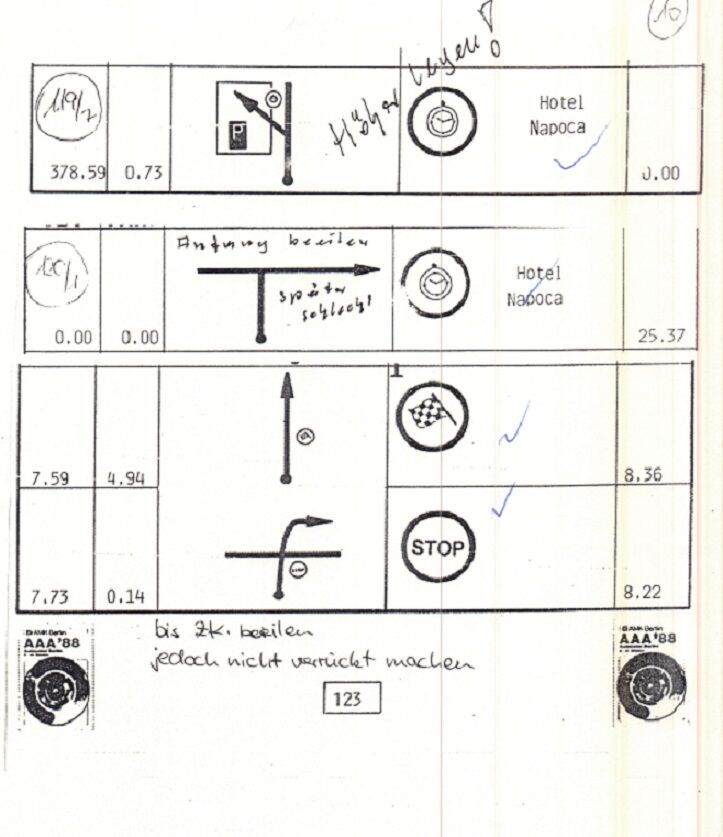 10
119/2
Hotel
Napoca
378.59 0.73
0.00
Anfang beeilen
später
schlecht
Hotel
Napoca
0.00 0.00
25.37
7.59 4.94
8,36
STOP
7.73 0.14
8.22
bis ZK. beeilen
jedoch nicht verrückt machen
AMK Berlin
AAA'88
AMK Berlin
AAA'88
123